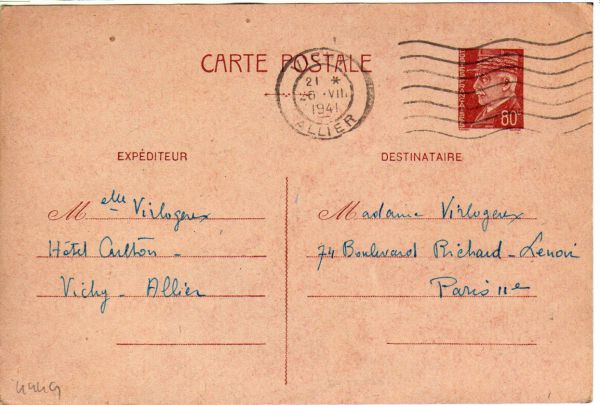 CARTE POSTALE
21 *
26 VII
1941
ALLIER
80
EXPÉDITEUR
DESTINATAIRE
Melle Virlogeux
Hôtel Carlton -
Vichy - Allier
Madame Virlogeux
74 Boulevard Richard-Lenoir
Paris 11e